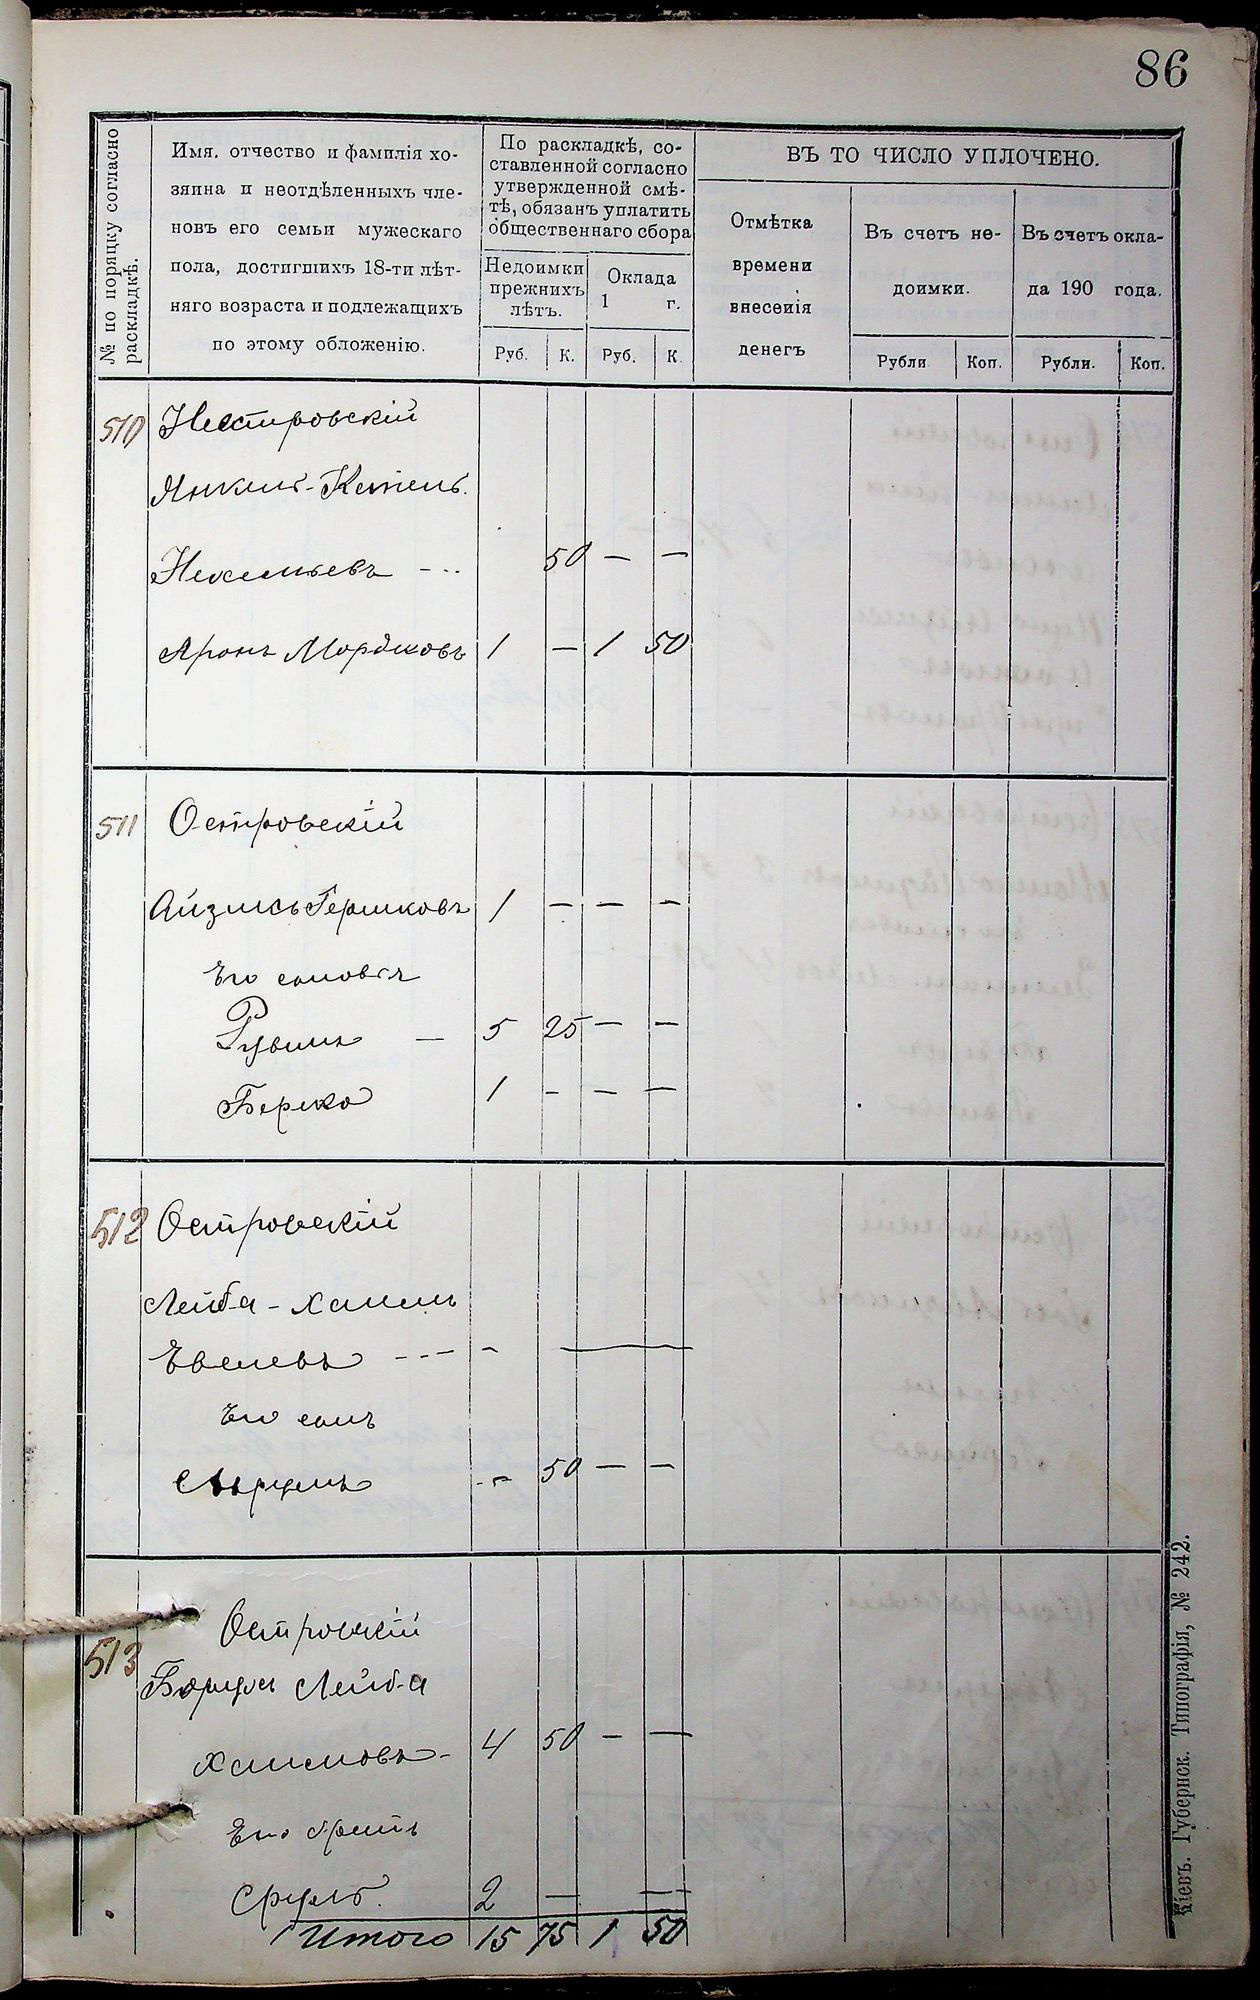 86
№ по порядку согласно
раскладкѣ.
Имя, отчество и фамилія хо-
зяина и неотдѣленныхъ чле-
новъ его семьи мужескаго
пола, достигшихъ 18-ти лѣт-
няго возраста и подлежащихъ
по этому обложенію.
По раскладкѣ, со-
ставленной согласно
утвержденной смѣ-
тѣ, обязанъ уплатить
общественнаго сбора
Недоимки
прежнихъ
лѣтъ.
Оклада
1 г.
Руб. К. Руб. К.
ВЪ ТО ЧИСЛО УПЛОЧЕНО.
Отмѣтка
времени
внесенія
денегъ
Въ счетъ не-
доимки.
Рубли Коп.
Въ счетъ окла-
да 190 года.
Рубли. Коп.
510 Нестровскій
Янкель-
50 — —
Аронъ Мордковъ 1 — 1 50
511 Островскій
Айзикъ Гершковъ 1 — — —
Его сыновья
Рувинъ — 5 25 — —
Берко 1 - - —
512 Островскій
Лейба-Хаимъ
Евелевъ --- -
Его сынъ
50 — —
513 Островскій
Борухъ Лейба
Хаимовъ- 4 50 — —
Его братъ
Сруль. 2 — —
Итого 15 75 1 50
Кіевъ. Губернск. Типографія, № 242.